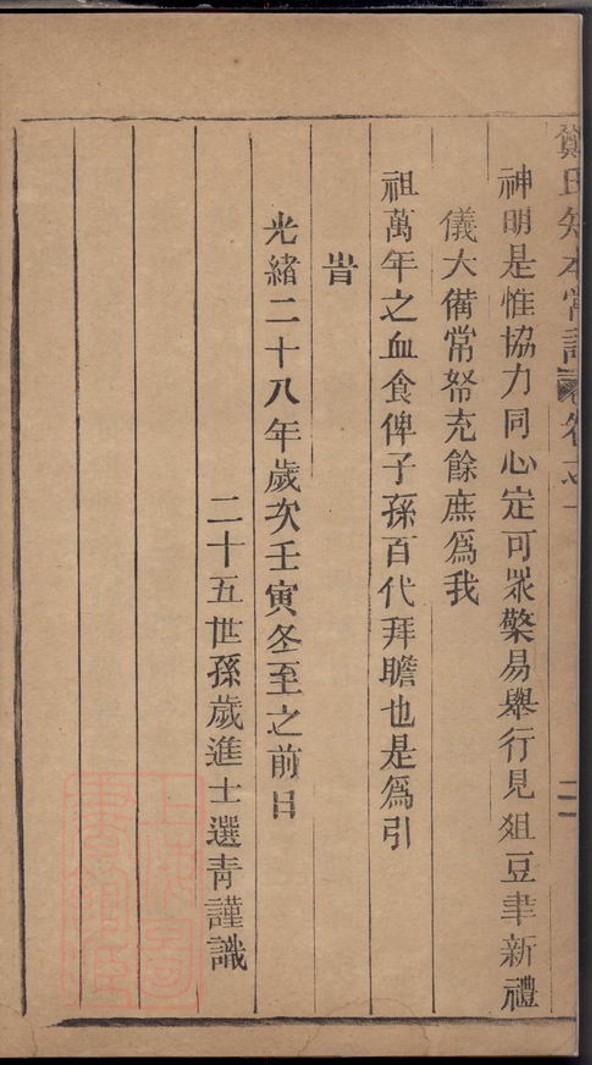 鄭氏知本堂譜 卷之一 二
神明是惟協力同心定可眾擎易舉行見俎豆聿新禮
儀大備常帑充餘庶爲我
祖萬年之血食俾子孫百代拜瞻也是爲引
旹
光緒二十八年歲次壬寅冬至之前日
二十五世孫歲進士選青謹識